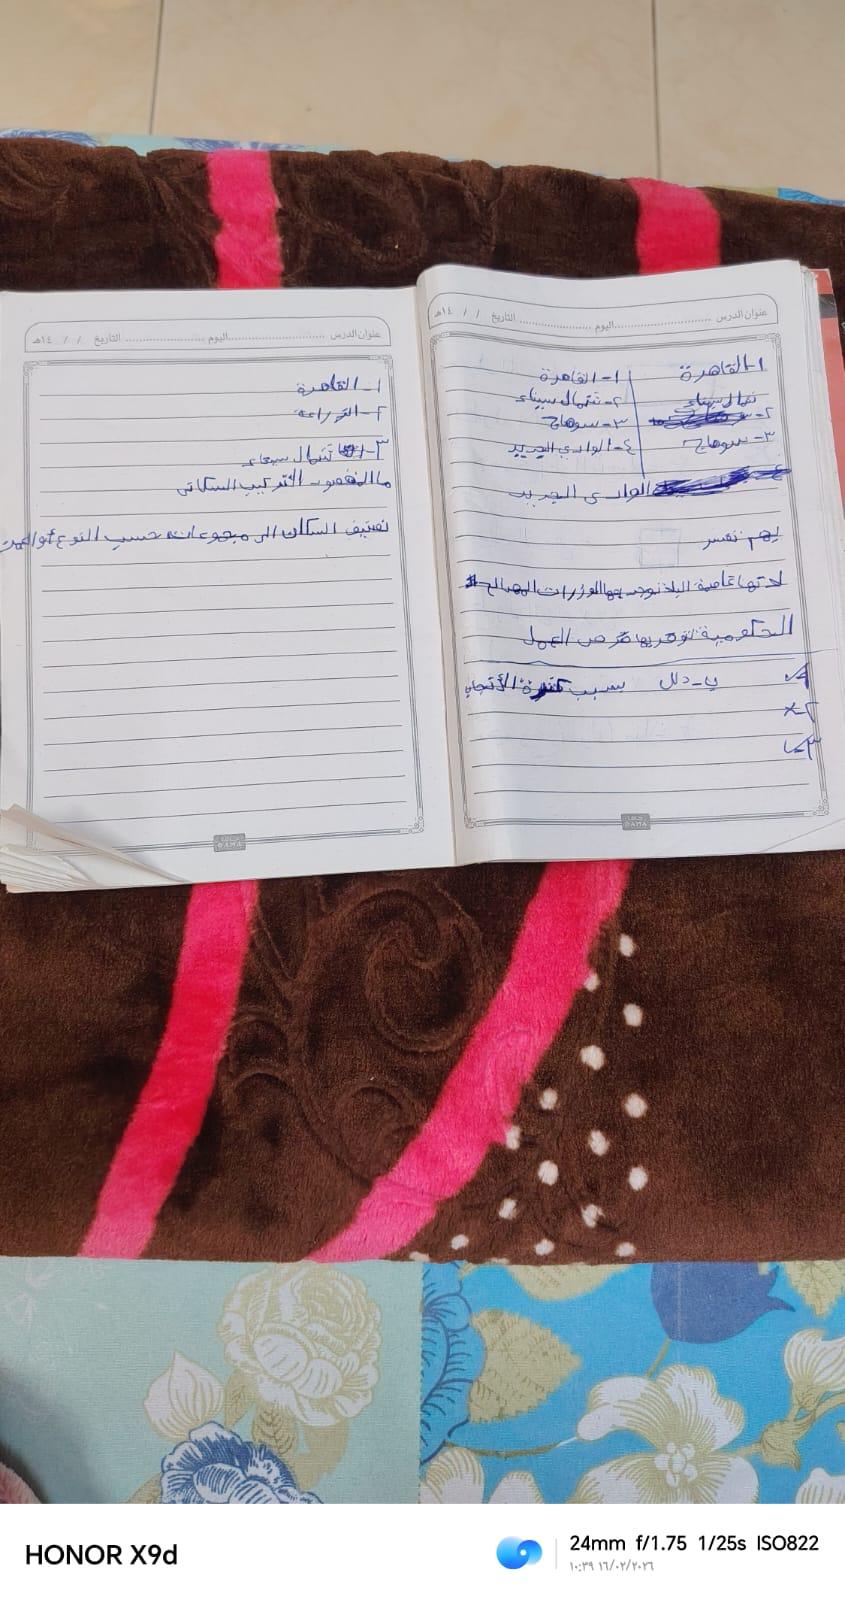 عنوان الدرس ........ اليوم ........ التاريخ / / ١٤هـ
١- القاهرة
١- القاهرة
شمال سيناء
٢- شمال سيناء
٢-
٣- سوهاج
٣- سوهاج
٤- الوادي الجديد
الوادى الجديد
بم تفسر
لانها عاصمة البلد توجد بها الوزرات المصالح
الحكومية توفر بها فرص العمل
ب- دلل بسبب كثرة الأنجاب
٢- x
٣-
DAMA
عنوان الدرس ........ اليوم ........ التاريخ / / ١٤هـ
١- القاهرة
٢- الزراعة
٣- شمال سيناء
ما المقصود التركيب السكانى
تصنيف السكان الى مجموعات حسب النوع أو العمر
DAMA
HONOR X9d
24mm f/1.75 1/25s ISO822
١٠:٣٩ ١٦/٠٢/٢٠٢٦